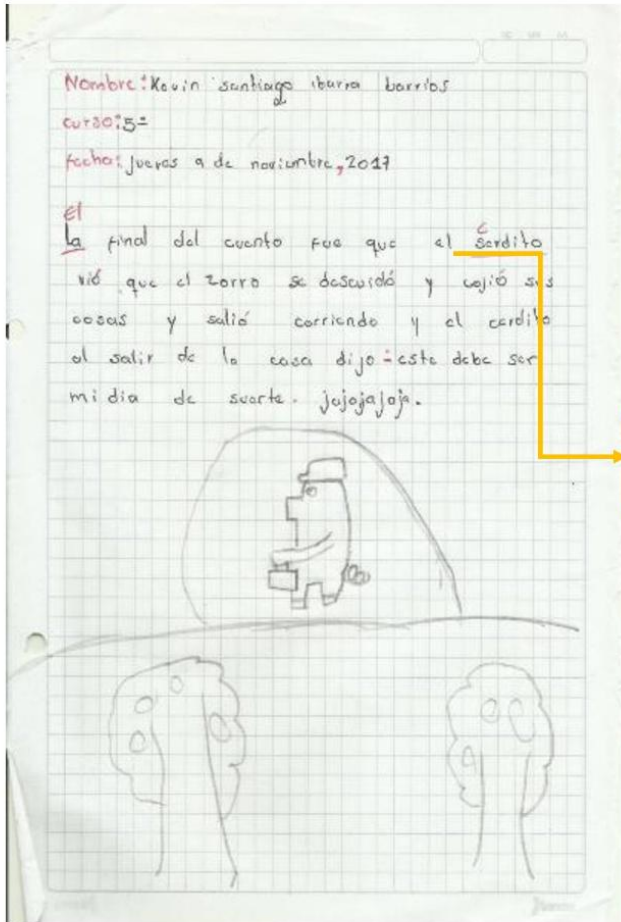 Nombre: Kevin santiago ibarra barrios
curso: 5=
fecha: jueves 9 de noviembre, 2017
El
la final del cuento fue que el serdito
c
vió que el zorro se descuidó y cojió sus
cosas y salió corriendo y el cerdito
al salir de la casa dijo - este debe ser
mi dia de suerte. jajajajaja.